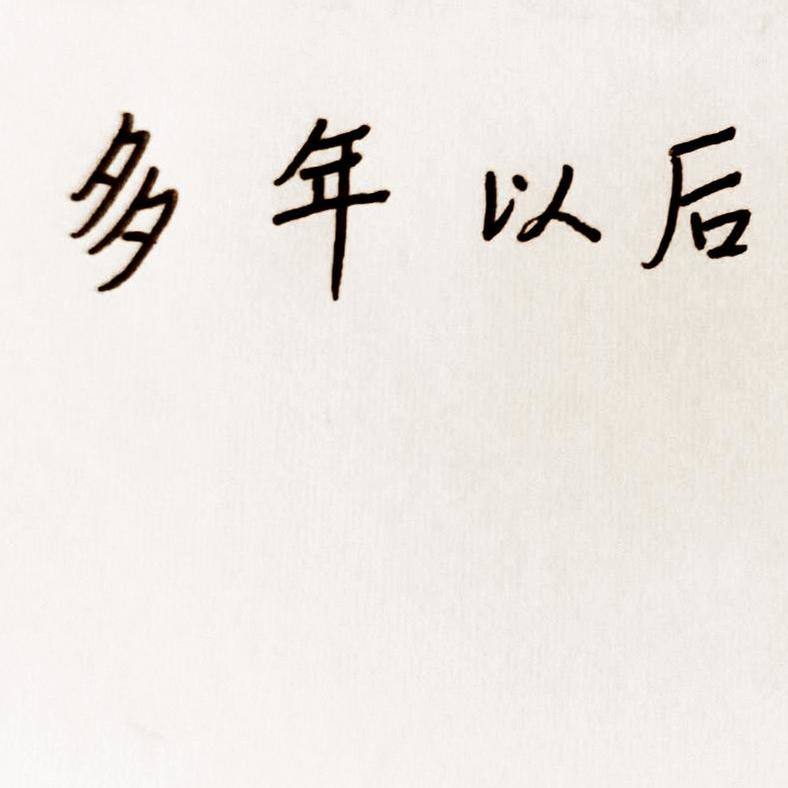 多年以后